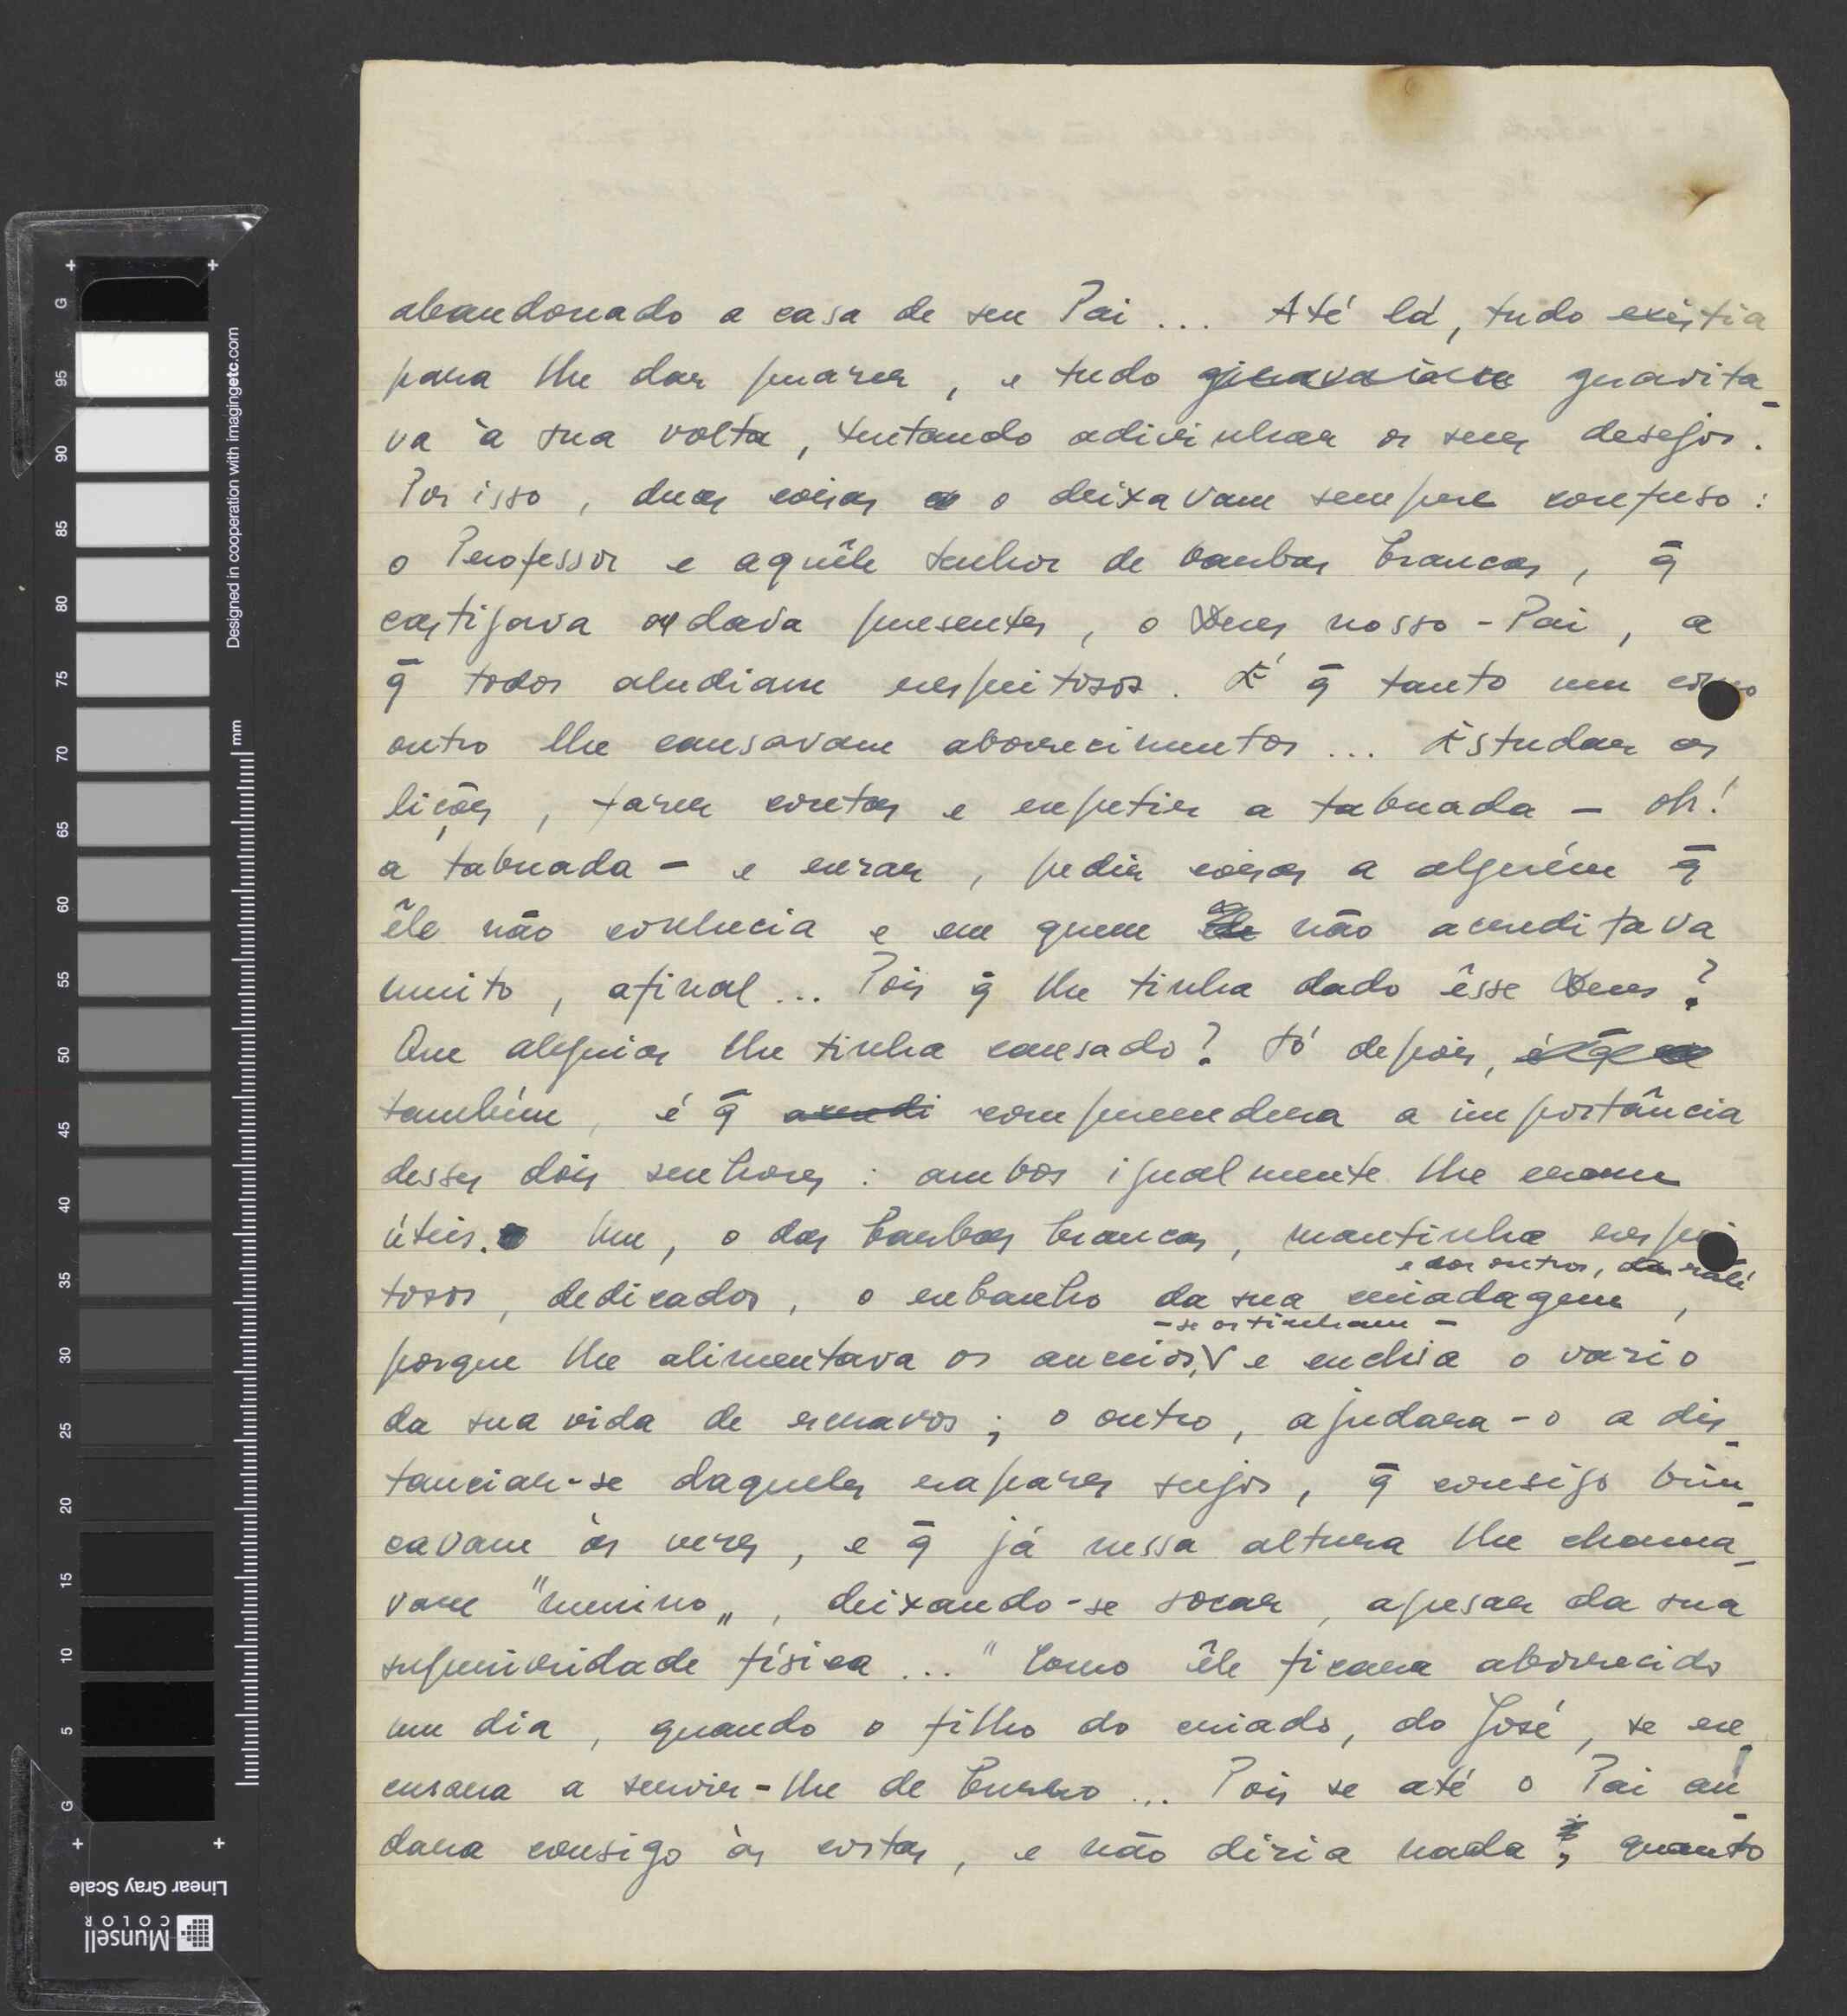 abandonado a casa de seu Pai ... Até lá, tudo existia
para lhe dar prazer, e tudo gravita_
va à sua volta, tentando adivinhar os seus desejos.
Por isso, duas coisas o deixavam sempre confuso:
o Professor e aquêle senhor de barbas brancas, q̄
castigava ou dava presentes, o Deus nosso-Pai, a
q̄ todos aludiam respeitosos. É q̄ tanto um como
outro lhe causavam aborrecimentos ... Estudar as
lições, fazer contas e repetir a tabuada - oh!
a tabuada - e rezar, pedir coisas a alguém q̄
êle não conhecia e em quem não acreditava
muito, afinal... Pois q̄ lhe tinha dado êsse Deus?
Que alegrias lhe tinha causado? Só depois,
também, é q̄ compreendera a importância
desses dois senhores: ambos igualmente lhe eram
úteis. Um, o das barbas brancas, mantinha respei
e dos outros,
tosos, dedicados, o rebanho da sua criadagem,
- se os tinham -
porque lhe alimentava os anceios, e enchia o vazio
da sua vida de escravos; o outro, ajudara-o a dis_
tanciar-se daqueles rapazes sujos, q̄ consigo brin_
cavam às vezes, e q̄ já nessa altura lhe chama_
vam "menino", deixando-se socar, apesar da sua
superioridade física ..." Como êle ficara aborrecido
um dia, quando o filho do criado, do José, se re_
cusara a servir-lhe de burro ... Pois se até o Pai an_
dara consigo às costas, e não diria nada, quanto